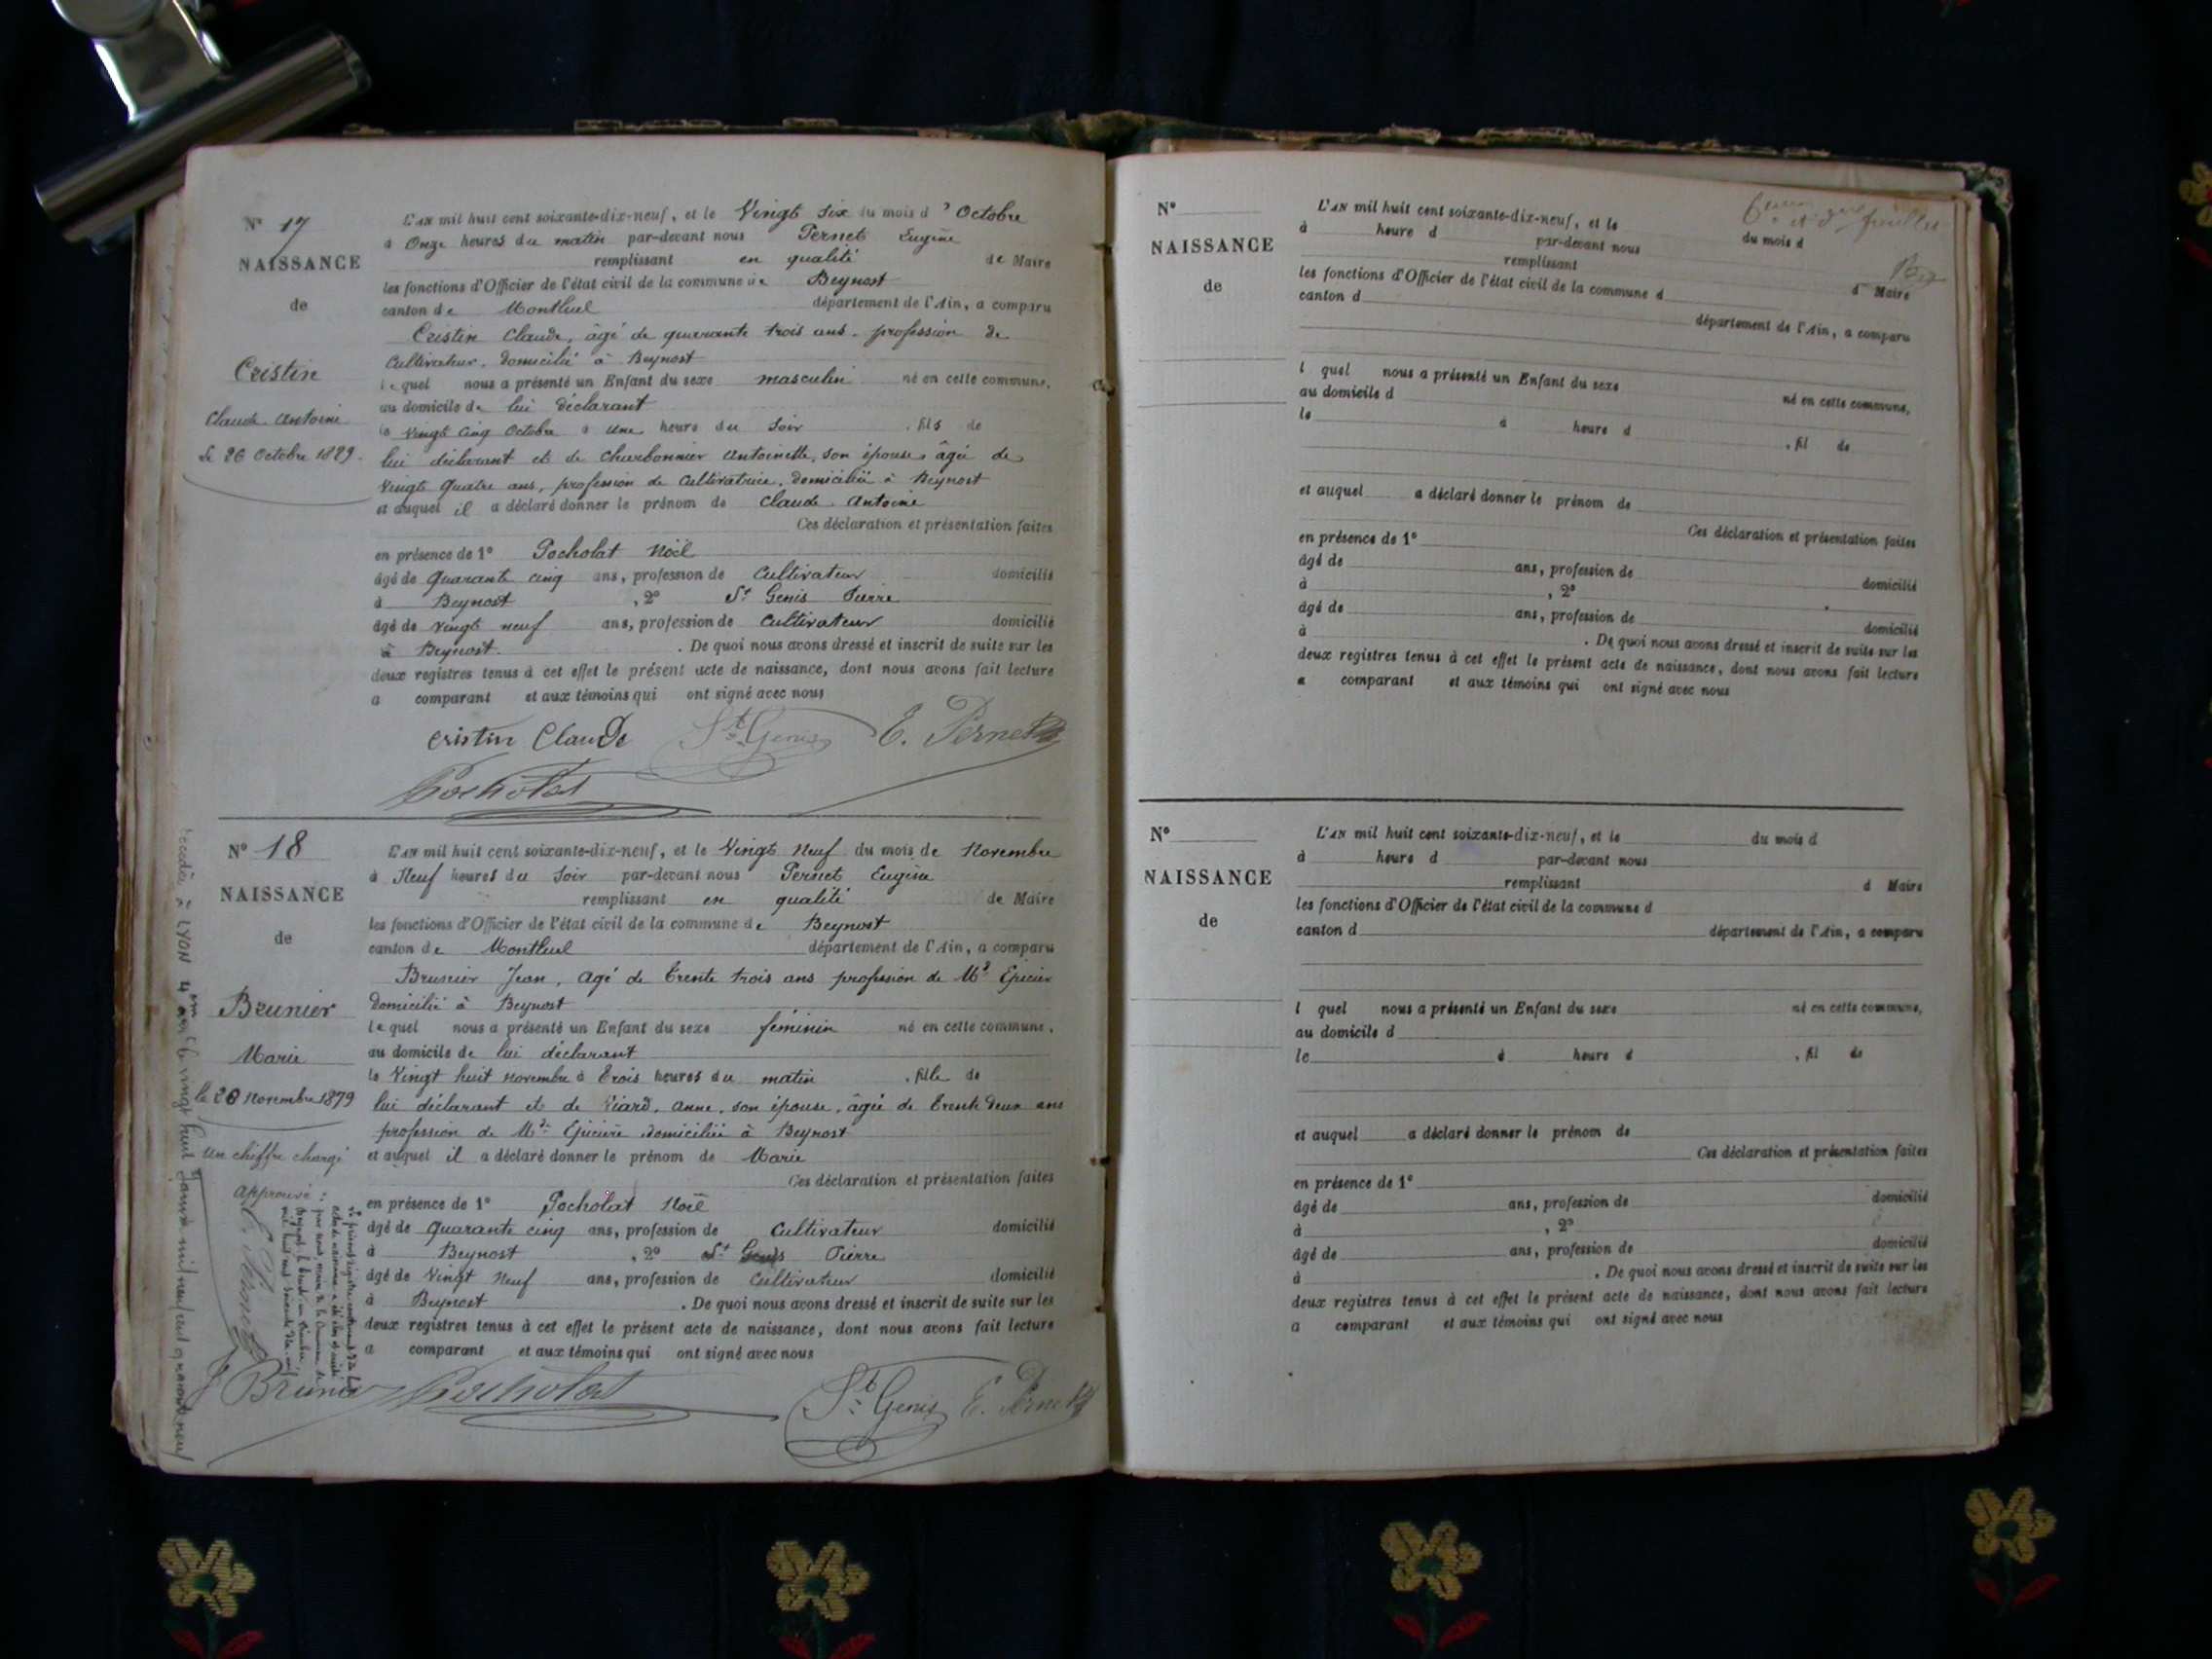 N° 17
NAISSANCE
de
Cristin
Claude Antoine
Le 26 Octobre 1889.
L'AN mil huit cent soixante-dix-neuf, et le Vingt Six du mois d' Octobre
à Onze heures du matin par-devant nous Pernet Eugène
remplissant en qualité de Maire
les fonctions d'Officier de l'état civil de la commune de Beynost
canton de Montluel département de l'Ain, a comparu
Cristin Claude, âgé de quarante trois ans, profession de
Cultivateur, domicilié à Beynost
lequel nous a présenté un Enfant du sexe masculin né en cette commune,
au domicile de lui déclarant
le Vingt Cinq Octobre à Une heure du Soir , fils de
lui déclarant et de Charbonnier Antoinette, son épouse, âgée de
Vingt Quatre ans, profession de Cultivatrice, domiciliée à Beynost
et auquel il a déclaré donner le prénom de Claude Antoine
Ces déclaration et présentation faites
en présence de 1° Pocholat Noël
âgé de Quarante cinq ans, profession de Cultivateur domicilié
à Beynost , 2° St Genis Pierre
âgé de Vingt neuf ans, profession de Cultivateur domicilié
à Beynost. . De quoi nous avons dressé et inscrit de suite sur les
deux registres tenus à cet effet le présent acte de naissance, dont nous avons fait lecture
a comparant et aux témoins qui ont signé avec nous
Cristin Claude St Genis E. Pernet
Pocholat
N° 18
NAISSANCE
de
Brunier
Marie
le 28 Novembre 1879
Un chiffre changé
Approuvé :
E. Pernet
L'AN mil huit cent soixante-dix-neuf, et le Vingt Neuf du mois de Novembre
à Neuf heures du Soir par-devant nous Pernet Eugène
remplissant en qualité de Maire
les fonctions d'Officier de l'état civil de la commune de Beynost
canton de Montluel département de l'Ain, a comparu
Brunier Jean, âgé de Trente trois ans profession de Md Epicier
domicilié à Beynost
lequel nous a présenté un Enfant du sexe féminin né en cette commune,
au domicile de lui déclarant
le Vingt huit Novembre à Trois heures du matin , fille de
lui déclarant et de Viard, Anne, son épouse, âgée de Trente Deux ans
profession de Mde Epicière domiciliée à Beynost
et auquel il a déclaré donner le prénom de Marie
Ces déclaration et présentation faites
en présence de 1° Pocholat Noël
âgé de Quarante cinq ans, profession de Cultivateur domicilié
à Beynost , 2° St Genis Pierre
âgé de Vingt Neuf ans, profession de Cultivateur domicilié
à Beynost . De quoi nous avons dressé et inscrit de suite sur les
deux registres tenus à cet effet le présent acte de naissance, dont nous avons fait lecture
a comparant et aux témoins qui ont signé avec nous
J Brunier Pocholat St Genis E. Pernet
vingt huit janvier mil neuf cent quarante neuf
N°
NAISSANCE
de
L'AN mil huit cent soixante-dix-neuf, et le du mois d
à heure d par-devant nous
remplissant d Maire
les fonctions d'Officier de l'état civil de la commune d
canton d département de l'Ain, a comparu
l quel nous a présenté un Enfant du sexe né en cette commune,
au domicile d
le à heure d , fil de
et auquel a déclaré donner le prénom de
Ces déclaration et présentation faites
en présence de 1°
âgé de ans, profession de domicilié
à , 2°
âgé de ans, profession de domicilié
à . De quoi nous avons dressé et inscrit de suite sur les
deux registres tenus à cet effet le présent acte de naissance, dont nous avons fait lecture
a comparant et aux témoins qui ont signé avec nous
N°
NAISSANCE
de
L'AN mil huit cent soixante-dix-neuf, et le du mois d
à heure d par-devant nous
remplissant d Maire
les fonctions d'Officier de l'état civil de la commune d
canton d département de l'Ain, a comparu
l quel nous a présenté un Enfant du sexe né en cette commune,
au domicile d
le à heure d , fil de
et auquel a déclaré donner le prénom de
Ces déclaration et présentation faites
en présence de 1°
âgé de ans, profession de domicilié
à , 2°
âgé de ans, profession de domicilié
à . De quoi nous avons dressé et inscrit de suite sur les
deux registres tenus à cet effet le présent acte de naissance, dont nous avons fait lecture
a comparant et aux témoins qui ont signé avec nous